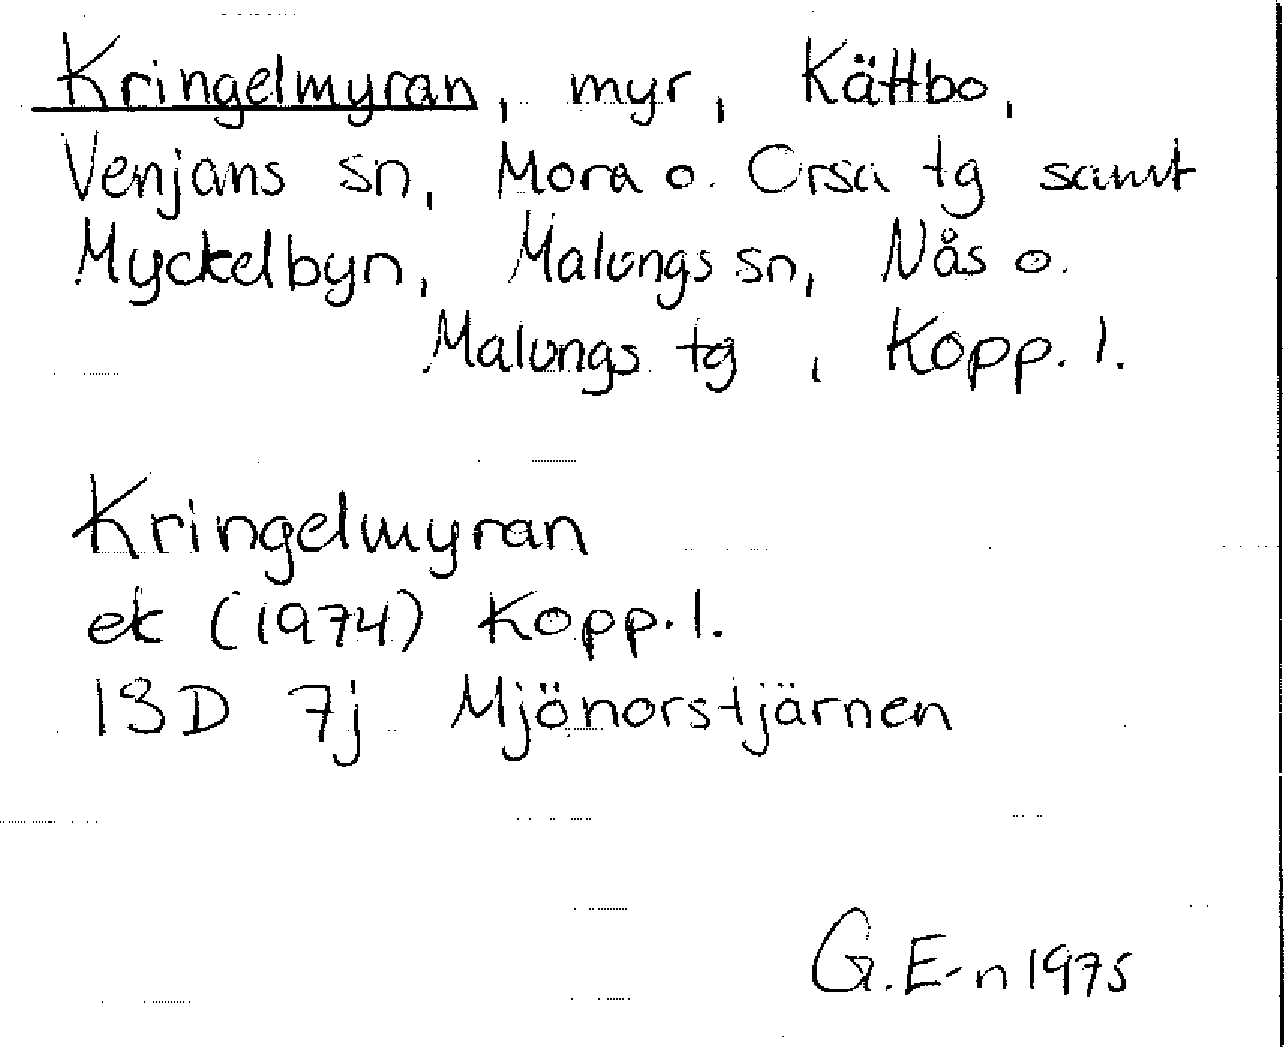 Kringelmyran, myr, Kättbo,
Venjans sn, Mora o. Orsa tg samt
Myckelbyn, Malungs sn, Nås o.
Malungs tg, Kopp. l.
Kringelmyran
ek (1974) Kopp. l.
13D 7j Mjönorstjärnen
G. E-n 1975